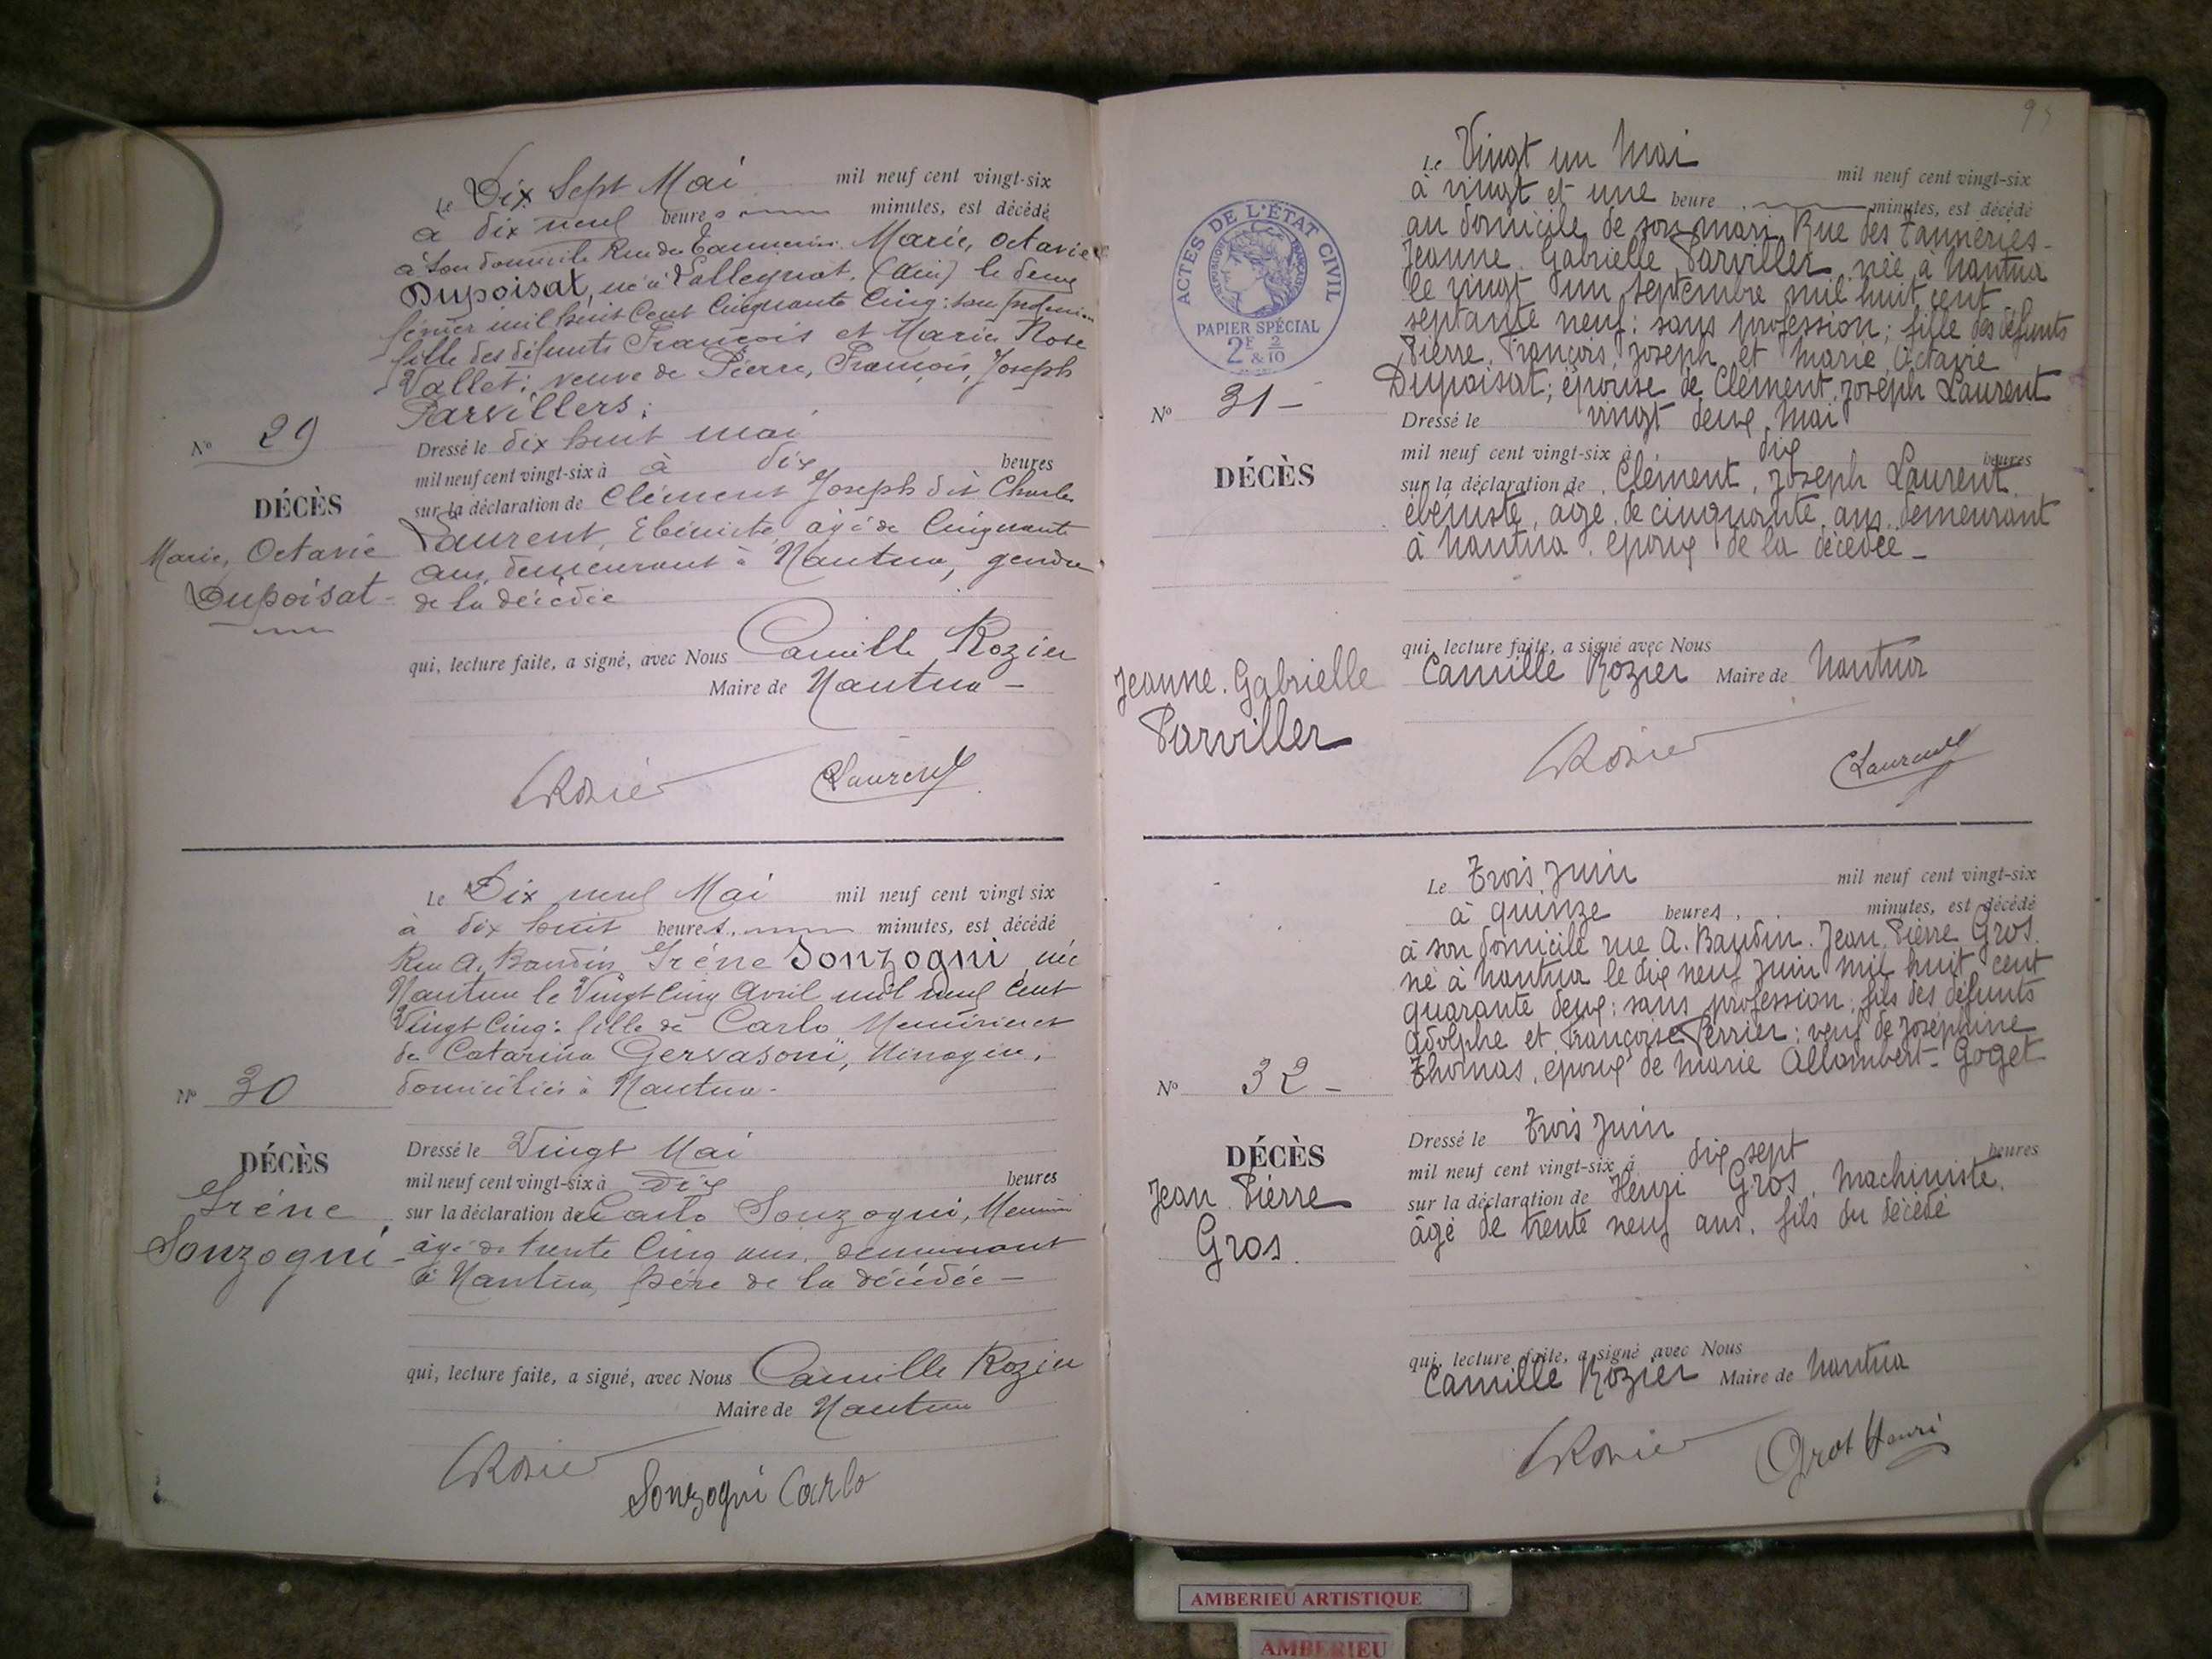 Le Dix Sept Mai mil neuf cent vingt-six
à dix neuf heures minutes, est décédé
à son domicile Rue des Tanneries Marie, Octavie
Dupoisat, né à Volleyriat, (Ain) le deux
février mil huit cent cinquante cinq: sans profession
fille des défunts François et Marie Rose
Vallet; veuve de Pierre, François, Joseph
Parvillers;
No 29
DÉCÈS
Marie, Octavie
Dupoisat
Dressé le dix huit mai
mil neuf cent vingt-six à à dix heures
sur la déclaration de Clément Joseph dit Charles
Laurent, Ebéniste, âgé de Cinquante
ans, demeurant à Nantua, gendre
de la décédée
qui, lecture faite, a signé, avec Nous Camille Rozier
Maire de Nantua -
CRozier CLaurent
Le Dix neuf Mai mil neuf cent vingt six
à dix huit heures, minutes, est décédé
Rue A. Baudin, Irène Sonzogni, née
Nantua le Vingt Cinq Avril mil neuf Cent
Vingt Cinq: fille de Carlo Menuisier et
de Catarina Gervasoni, Ménagère,
domiciliés à Nantua -
No 30
DÉCÈS
Irène
Sonzogni
Dressé le Vingt Mai
mil neuf cent vingt-six à Dix heures
sur la déclaration de Carlo Sonzogni, Menuisier
âgé de trente Cinq ans, demeurant
à Nantua, père de la décédée -
qui, lecture faite, a signé, avec Nous Camille Rozier
Maire de Nantua
CRozier
Sonzogni Carlo
ACTES DE L'ÉTAT CIVIL
RÉPUBLIQUE FRANÇAISE
PAPIER SPÉCIAL
2F & 2/10
Le Vingt un Mai mil neuf cent vingt-six
à vingt et une heure minutes, est décédé
au domicile de son mari, Rue des Tanneries -
Jeanne, Gabrielle Parviller, née à Nantua
le vingt un septembre mil huit cent
septante neuf: sans profession; fille des défunts
Pierre, François, Joseph et Marie Octavie
Dupoisat; épouse de Clément, Joseph Laurent
No 31 -
DÉCÈS
Jeanne. Gabrielle
Parviller
Dressé le vingt deux Mai
mil neuf cent vingt-six à dix heures
sur la déclaration de Clément, Joseph Laurent,
ébéniste, âgé de cinquante ans, demeurant
à Nantua, époux de la décédée -
qui, lecture faite, a signé avec Nous
Camille Rozier Maire de Nantua
CRozier CLaurent
Le Trois Juin mil neuf cent vingt-six
à quinze heures, minutes, est décédé
à son domicile rue A. Baudin. Jean, Pierre Gros,
né à Nantua le dix neuf juin mil huit cent
quarante deux: sans profession; fils des défunts
Adolphe et Françoise Perrier; veuf de Joséphine
Thomas, époux de Marie Allombert-Goget
No 32 -
DÉCÈS
Jean Pierre
Gros.
Dressé le Trois Juin
mil neuf cent vingt-six à dix sept heures
sur la déclaration de Henri Gros, Machiniste,
âgé de trente neuf ans, fils du décédé
qui, lecture faite, a signé avec Nous
Camille Rozier Maire de Nantua
CRozier Gros Henri
AMBERIEU ARTISTIQUE
AMBERIEU